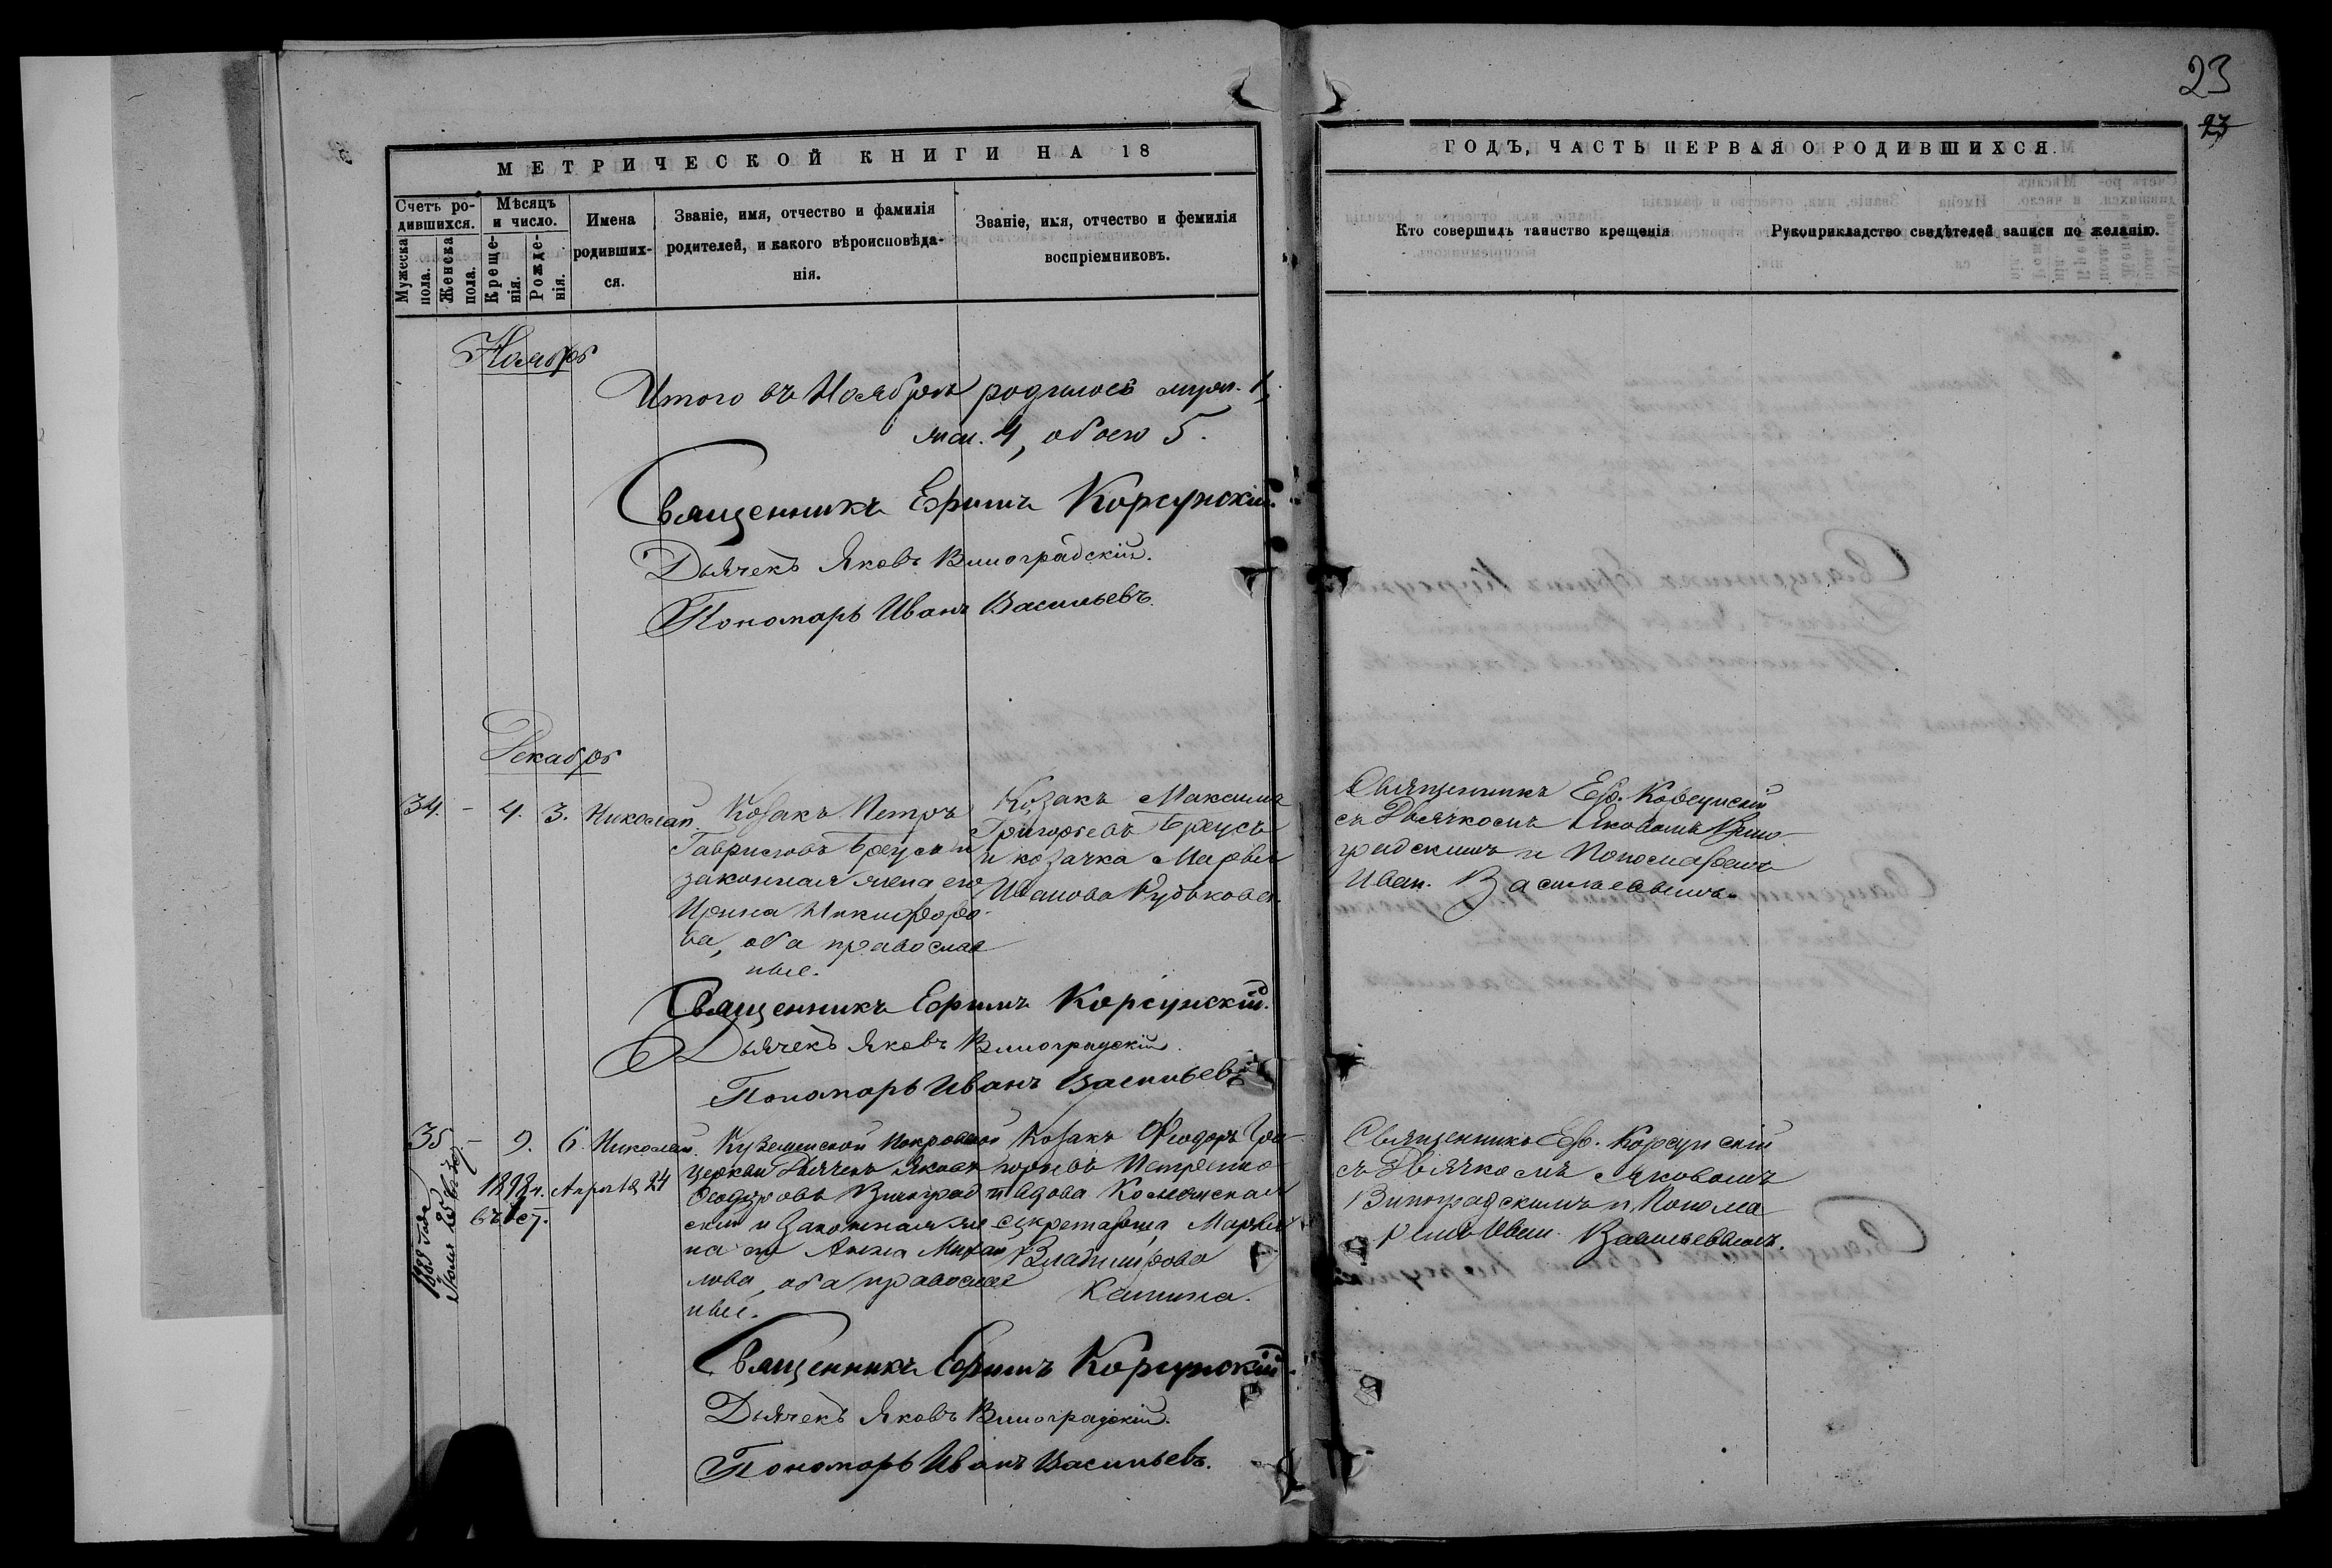 23
23
МЕТРИЧЕСКОЙ КНИГИ НА 18
ГОДЪ, ЧАСТЬ ПЕРВАЯ О РОДИВШИХСЯ.
Счетъ ро-
дившихся.
Мужеска
пола.
Женска
пола.
Мѣсяцъ
и число.
Креще-
нія.
Рожде-
нія.
Имена
родивших-
ся.
Званіе, имя, отчество и фамилія
родителей, и какого вѣроисповѣда-
нія.
Званіе, имя, отчество и фемилія
воспріемниковъ.
Кто совершилъ таинство крещенія
Рукоприкладство свидѣтелей записи по желанію.
Ноябрь
Итого въ Ноябрѣ родилось муж. 1,
жен. 4, обоего 5.
Священникъ Ефимъ Корсунскій.
Дьячекъ Яковъ Виноградскій.
Пономарь Иванъ Васильевъ.
Декабрь
34. - 4. 3. Николай.
Козакъ Петръ
Гавриловъ Бреусъ и
законная жена его
Ирина Никифоро-
ва, оба православ
ные.
Козакъ Максимъ
Григорьевъ Бреусъ
и козачка Марѳа
Иванова
Священникъ Еф. Корсунскій
съ Дьячкомъ Яковомъ Вино-
градскимъ и Пономаремъ
Иван. Васильевымъ.
Священникъ Ефимъ Корсунскій.
Дьячекъ Яковъ Виноградскій.
Пономарь Иванъ Васильевъ
35 - 9. 6. Николай.
1888 года
Іюля 25
1898 г. Апрѣля 24
Покровской
церкви Дьячекъ Яковъ
Ѳеодоровъ Виноград
скій и законная же
на его Анна Михаи
лова, оба православ
ные.
Козакъ Ѳеодоръ Гри-
горьевъ Петренко
и вдова
секретарша Марѳа
Владимірова
Калина.
Священникъ Еф. Корсунскій
съ Дьячкомъ Яковомъ
Виноградскимъ и Понома
ремъ Иван. Васильевымъ.
Священникъ Ефимъ Корсунскій.
Дьячекъ Яковъ Виноградскій.
Пономарь Иванъ Васильевъ.